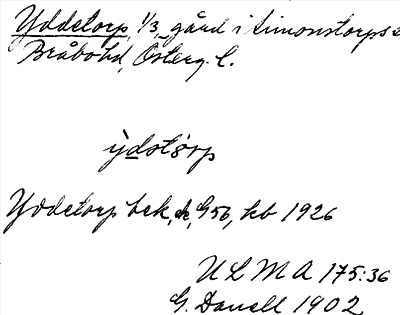 Yddetorp, 1/3, gård i Simonstorps s
Bråbohd, Österg. l.
ydstorp
Yddetorp bek, Gsb, kb 1926
ULMA 175:36
G. Danell 1902